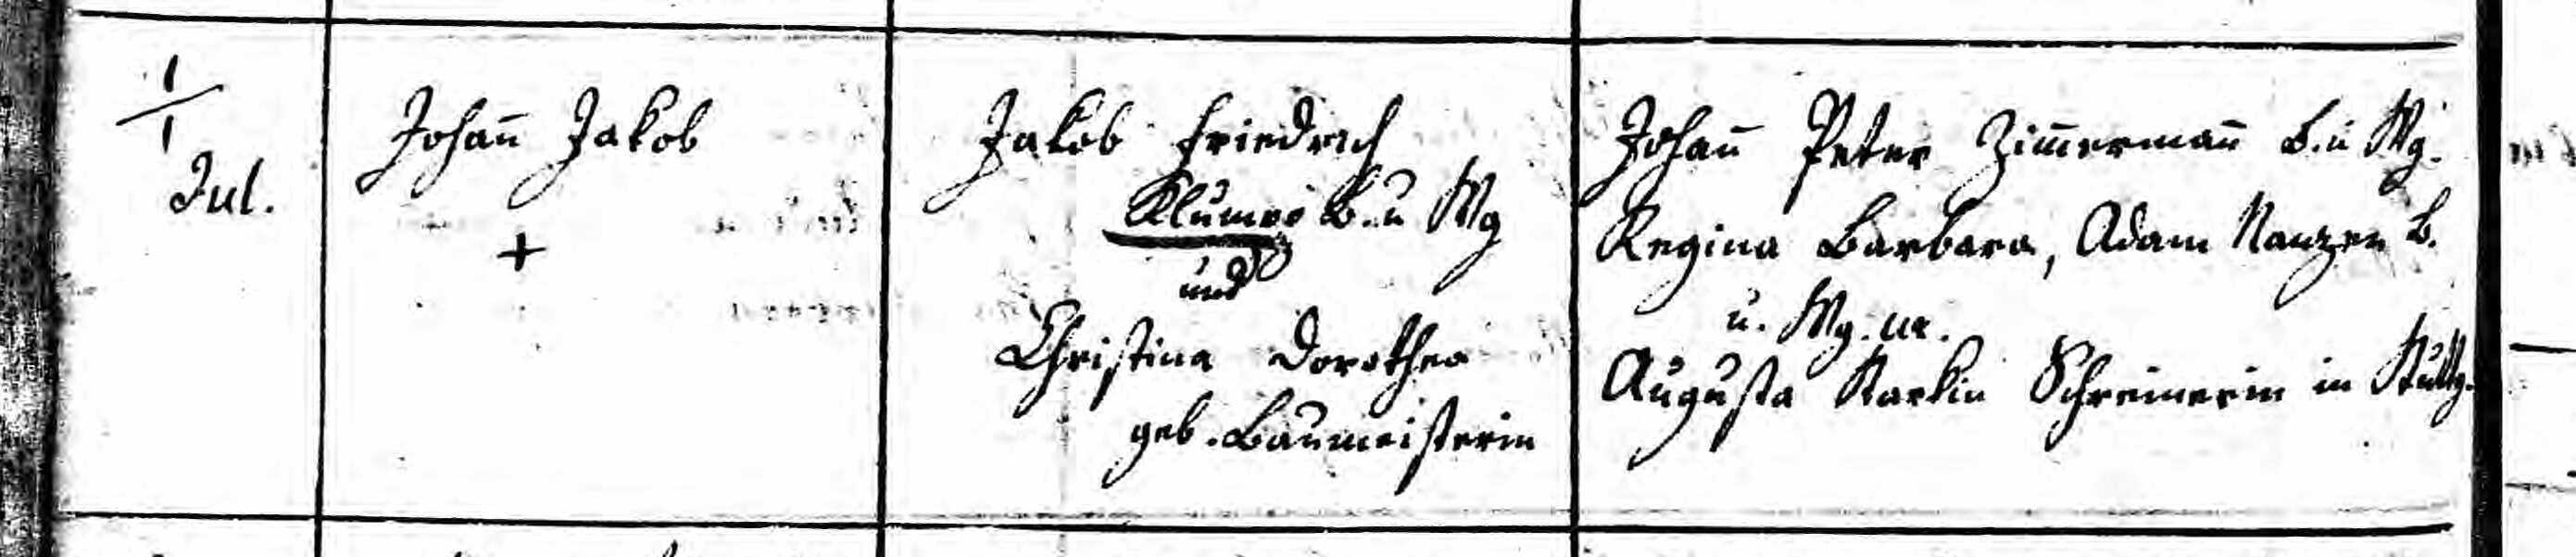 1/1
Jul.
Johan̄ Jakob
+
Jakob Friedrich
Klumpp B. u Wg
und
Christina Dorothea
geb. Baumeisterin
Johan̄ Peter Zim̄erman̄ B. u Wg.
Regina Barbara, Adam Nanzen B.
u. Wg. ux.
Augusta Starkin Schreinerin in Stuttg.